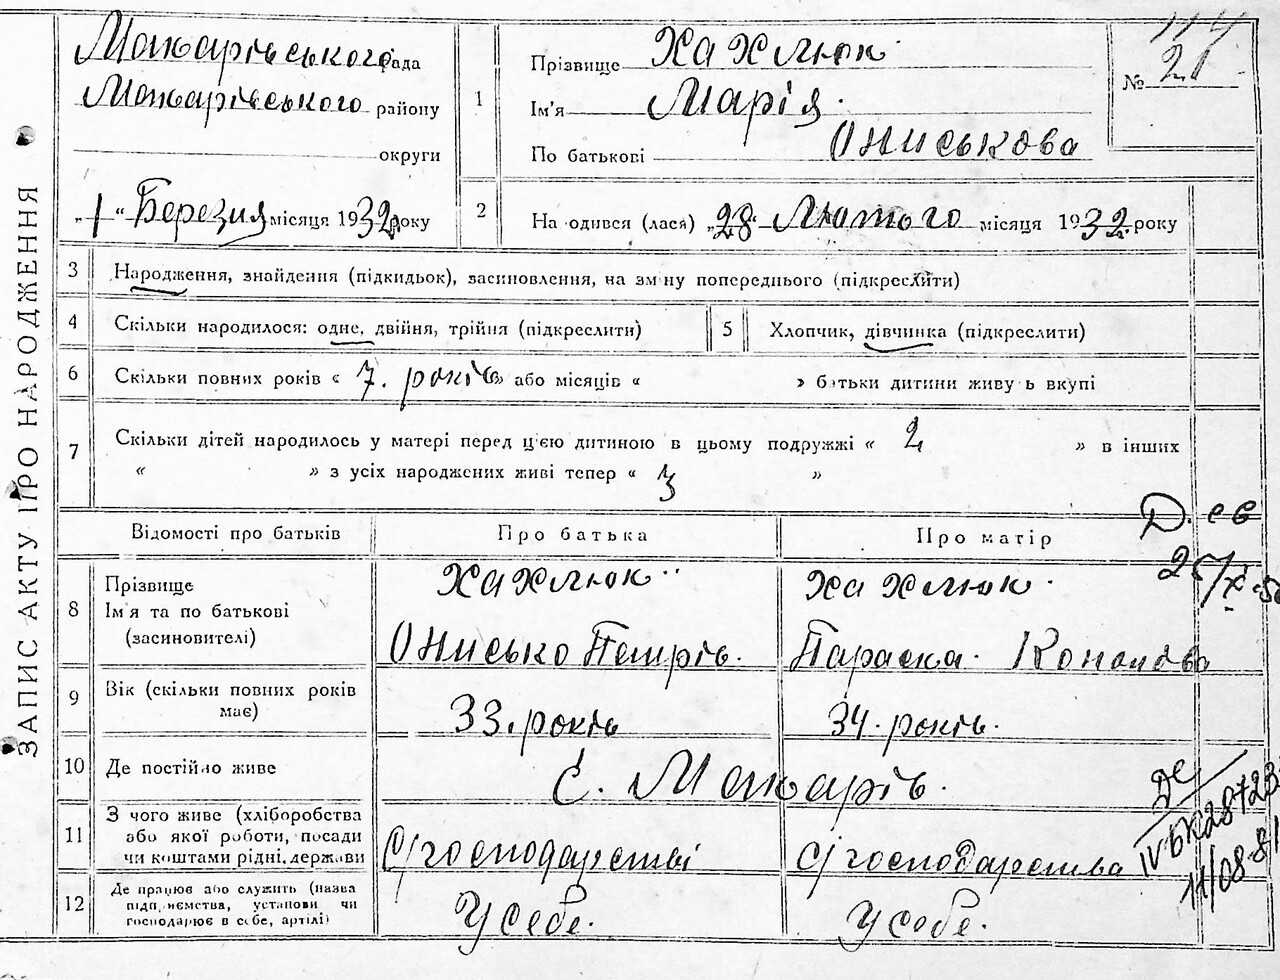 ЗАПИС АКТУ ПРО НАРОДЖЕННЯ
Макарівського рада
Макарівського району
округи
„1“ Березня місяця 1932 року
1
Прізвище Хахлюк.
Ім'я Марія.
По батькові Ониськова
114
№ 21
2
На одився (лася) „28“ Лютого місяця 1932 року
3 Народження, знайдення (підкидьок), засиновлення, на зміну попереднього (підкреслити)
4 Скільки народилося: одне, двійня, трійня (підкреслити) 5 Хлопчик, дівчинка (підкреслити)
6 Скільки повних років « 7. років » або місяців « » батьки дитини живу ь вкупі
7 Скільки дітей народилось у матері перед цією дитиною в цьому подружжі « 2 » в інших
« » з усіх народжених живі тепер « 3 »
Відомості про батьків Про батька Про матір
8 Прізвище
Ім'я та по батькові
(засиновителі)
Хахлюк
Онисько Петрів.
Хахлюк.
Параска.
Д. св
25/X-5
9 Вік (скільки повних років
має)
33. років 34. років.
10 Де постійно живе с. Макарів.
11 З чого живе (хліборобства
або якої роботи, посади
чи коштами рідні, держави
С/господарстві с/господарства
IV БК 28723
11/08-81
12 Де працює або служить (назва
підприємства, установи чи
господарює в себе, артілі)
У себе. У себе.